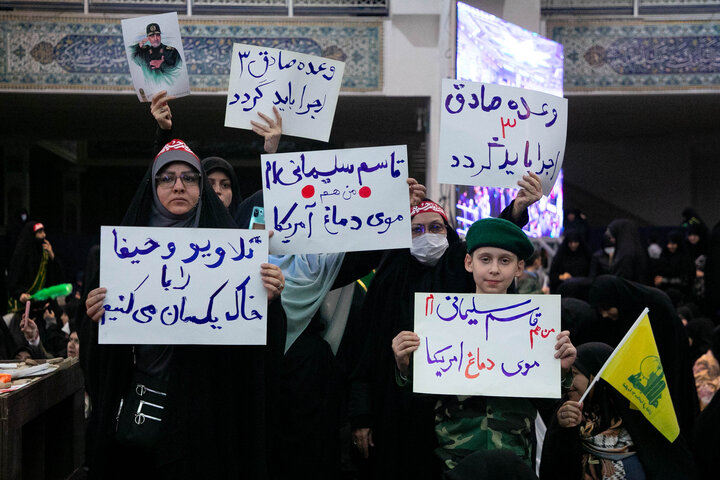 وعده صادق ۳
اجرا باید گردد
وعده صادق
۳
اجرا باید گردد
قاسم سلیمانی ام
من هم
موی دماغ آمریکا
تلاویو و حیفا
را با
خاک یکسان می کنیم
من هم قاسم سلیمانی ام
موی دماغ امریکا